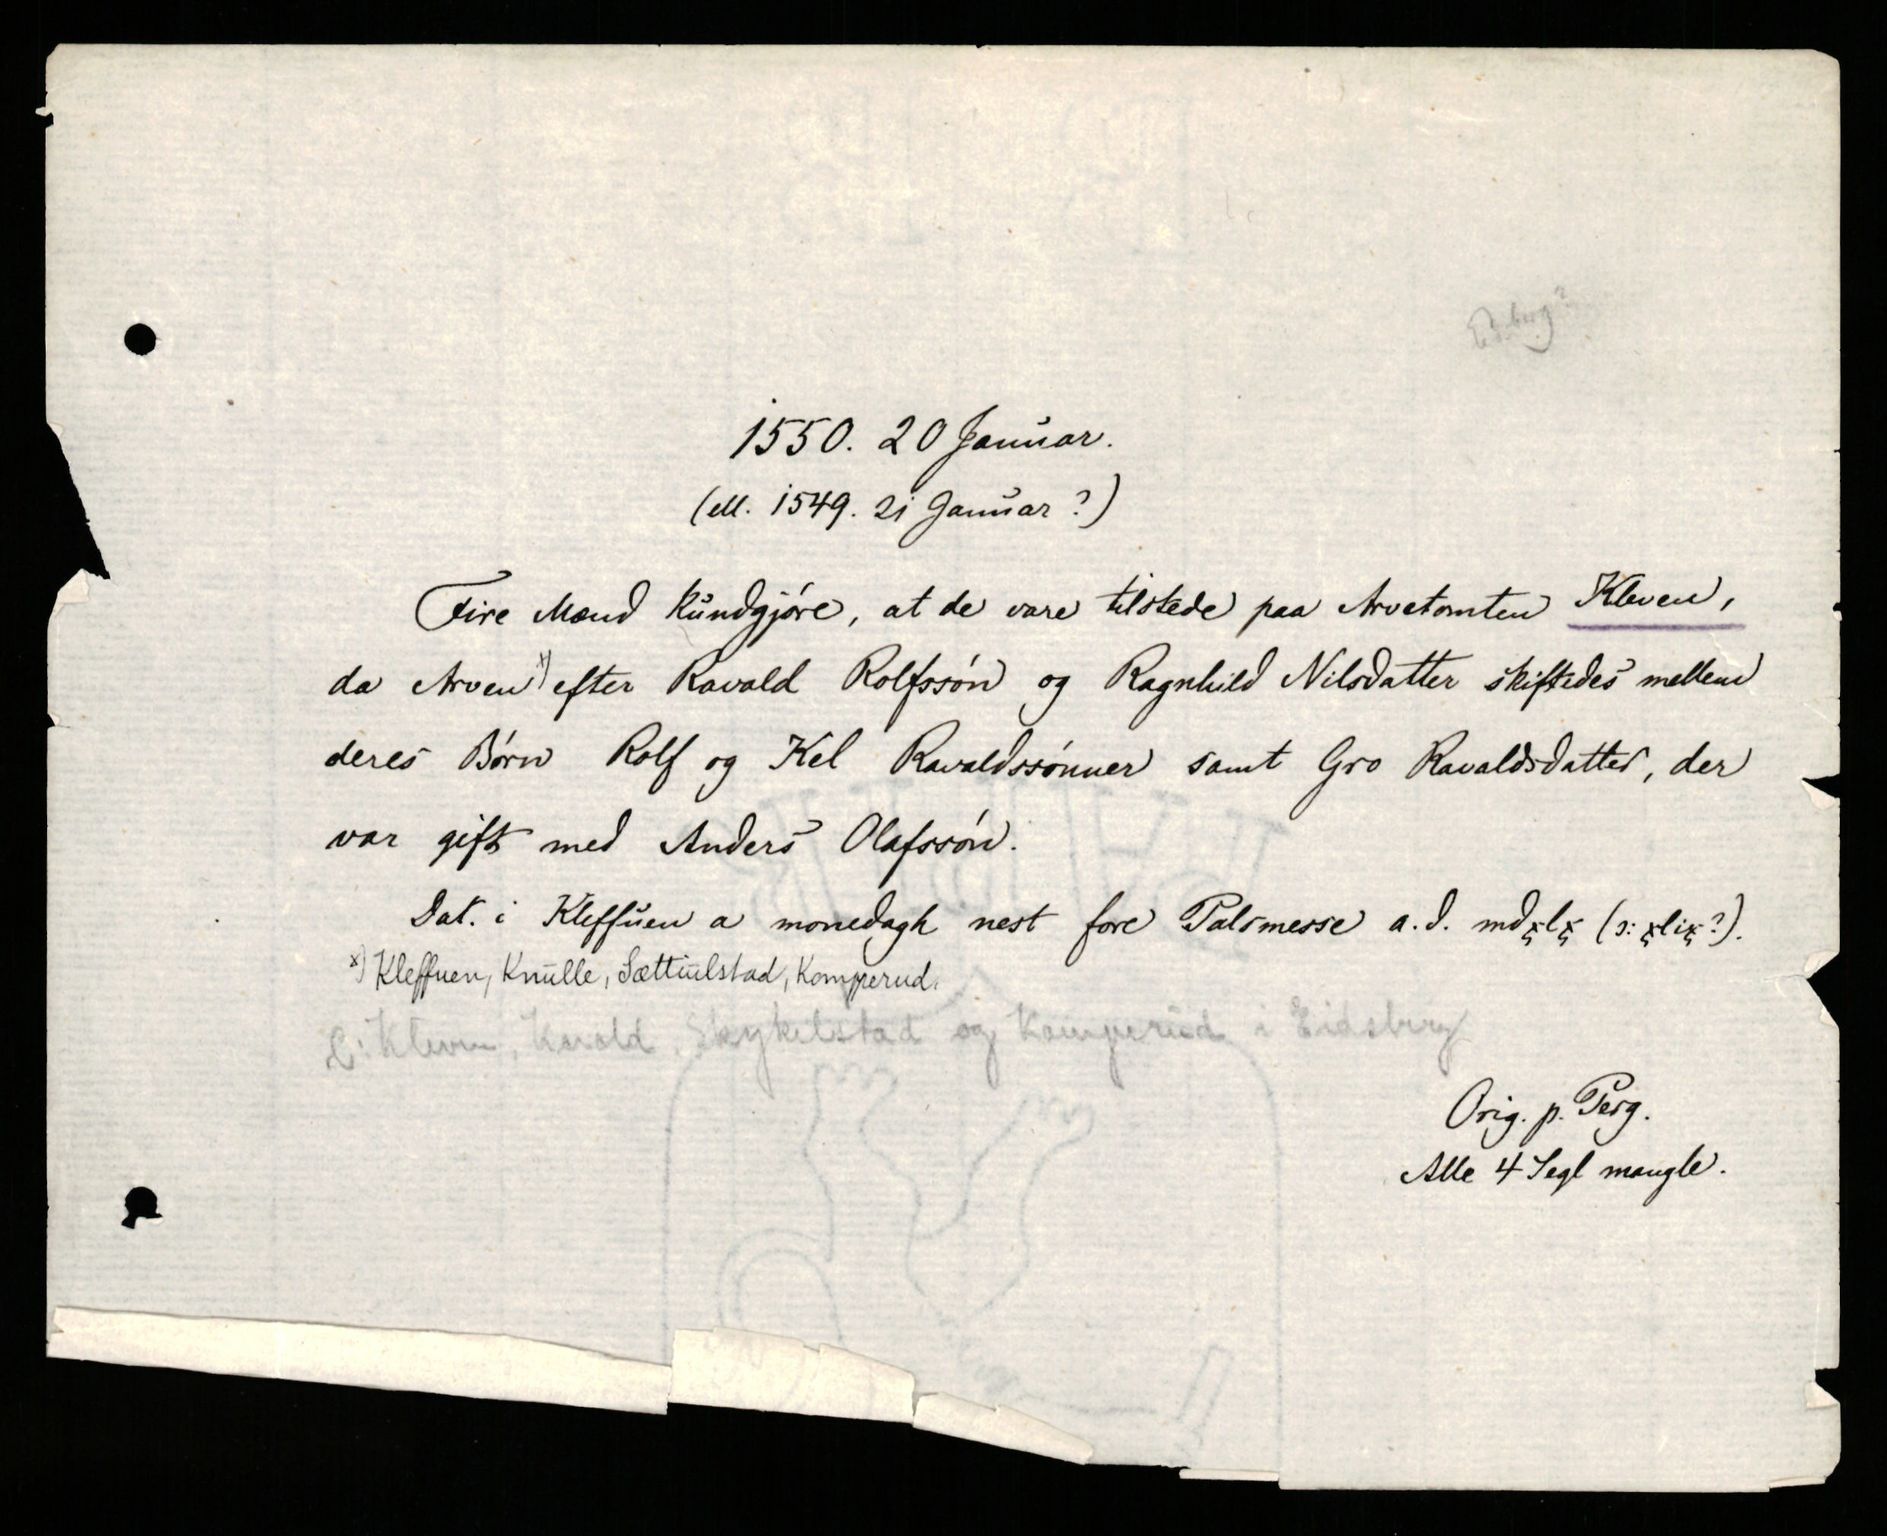 Eidsberg?
1550. 20 Januar.
(ell. 1549. 21 Januar?)
Fire Mænd kundgjøre, at de vare tilstede paa Arvetomten Kleven,
da Arven x) efter Ravald Rolfssøn og Ragnhild Nilsdatter skiftedes mellem
deres Børn Rolf og Kel Ravaldssønner samt Gro Ravaldsdatter, der
var gift med Anders Olafssøn.
Dat. i Kleffuen a monedagh nest fore Palsmesse a. d. mdxlx (ɔ: xlix?).
x) Kleffuen, Knulle, Sættiulstad, Komperud.
ɔ: Kleven, Knold, Skykelstad og Kamperud i Eidsberg
Orig. p. Perg.
Alle 4 Segl mangle.